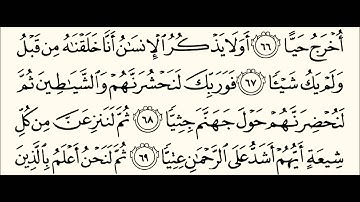 أُخْرَجُ حَيًّا ٦٦ أَوَلَا يَذْكُرُ الْإِنسَانُ أَنَّا خَلَقْنَاهُ مِن قَبْلُ
وَلَمْ يَكُ شَيْئًا ٦٧ فَوَرَبِّكَ لَنَحْشُرَنَّهُمْ وَالشَّيَاطِينَ ثُمَّ
لَنُحْضِرَنَّهُمْ حَوْلَ جَهَنَّمَ جِثِيًّا ٦٨ ثُمَّ لَنَنزِعَنَّ مِن كُلِّ
شِيعَةٍ أَيُّهُمْ أَشَدُّ عَلَى الرَّحْمَٰنِ عِتِيًّا ٦٩ ثُمَّ لَنَحْنُ أَعْلَمُ بِالَّذِينَ